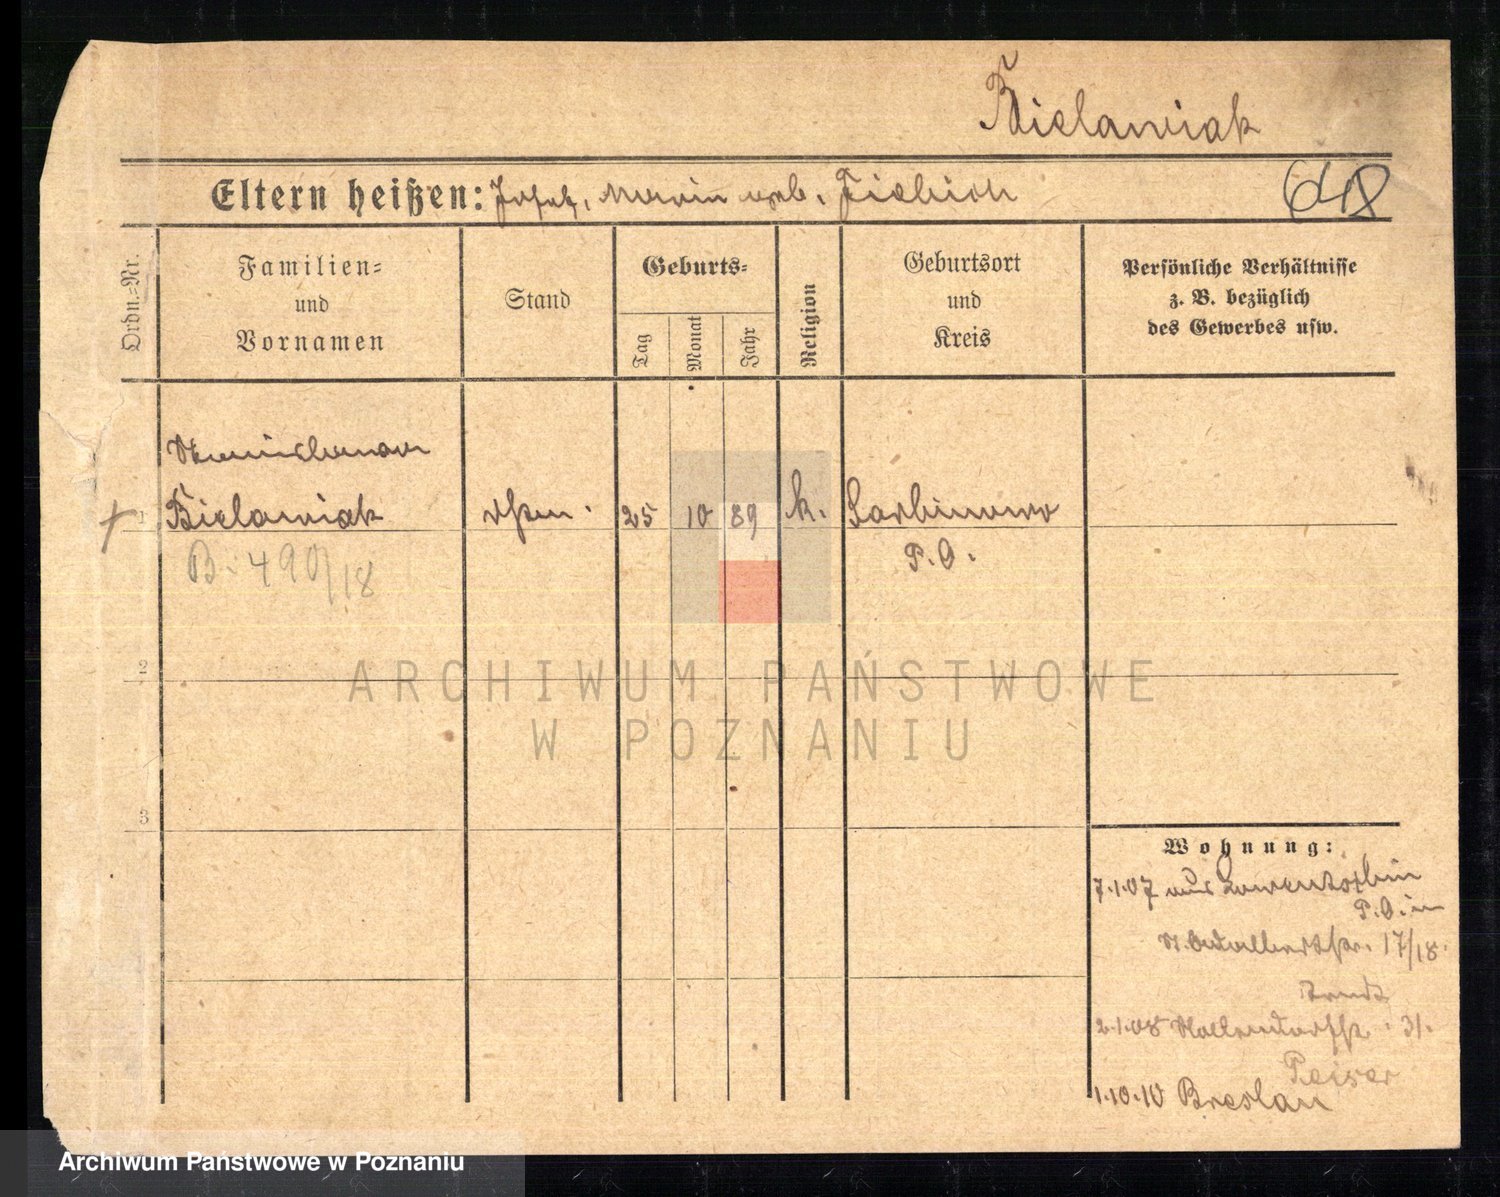 Bielawiak
Eltern heißen: Josef, Maria geb.
648
Ordn.=Nr.
Familien=
und
Vornamen
Stand
Geburts=
Tag
Monat
Jahr
Religion
Geburtsort
und
Kreis
Persönliche Verhältnisse
z. B. bezüglich
des Gewerbes usw.
1
Bielawiak
25
10
89
k.
Sarbinowo
P. O.
B. 490/18
2
3
ARCHIWUM PAŃSTWOWE
W POZNANIU
Wohnung:
7.1.07 aus
P. O. in
St. Adalbertstr. 17/18.
2.1.08 31.
Peiser
1.10.10 Breslau
Archiwum Państwowe w Poznaniu